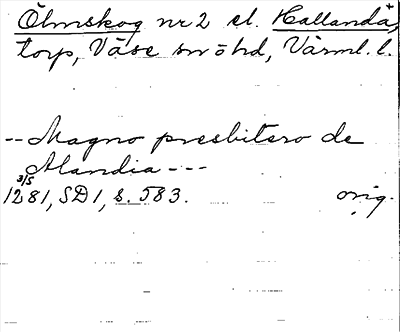 Ölmskog nr 2 el. Hallandå,
torp, Väse sn ö hd, Värml. l.
-- Magno presbitero de
Alandia ---
3/5
1281, SD 1, s. 583. orig.